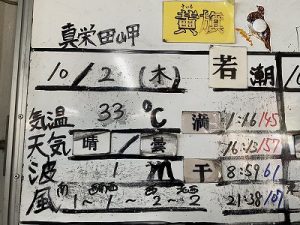 真栄田岬 黄旗
10/2(木) 若潮
気温 33℃ 満 1:16 145
天気 晴/曇 16:13 157
波 1m 干 8:59 61
風 南 西 北西
1~1~2~2 21:38 107